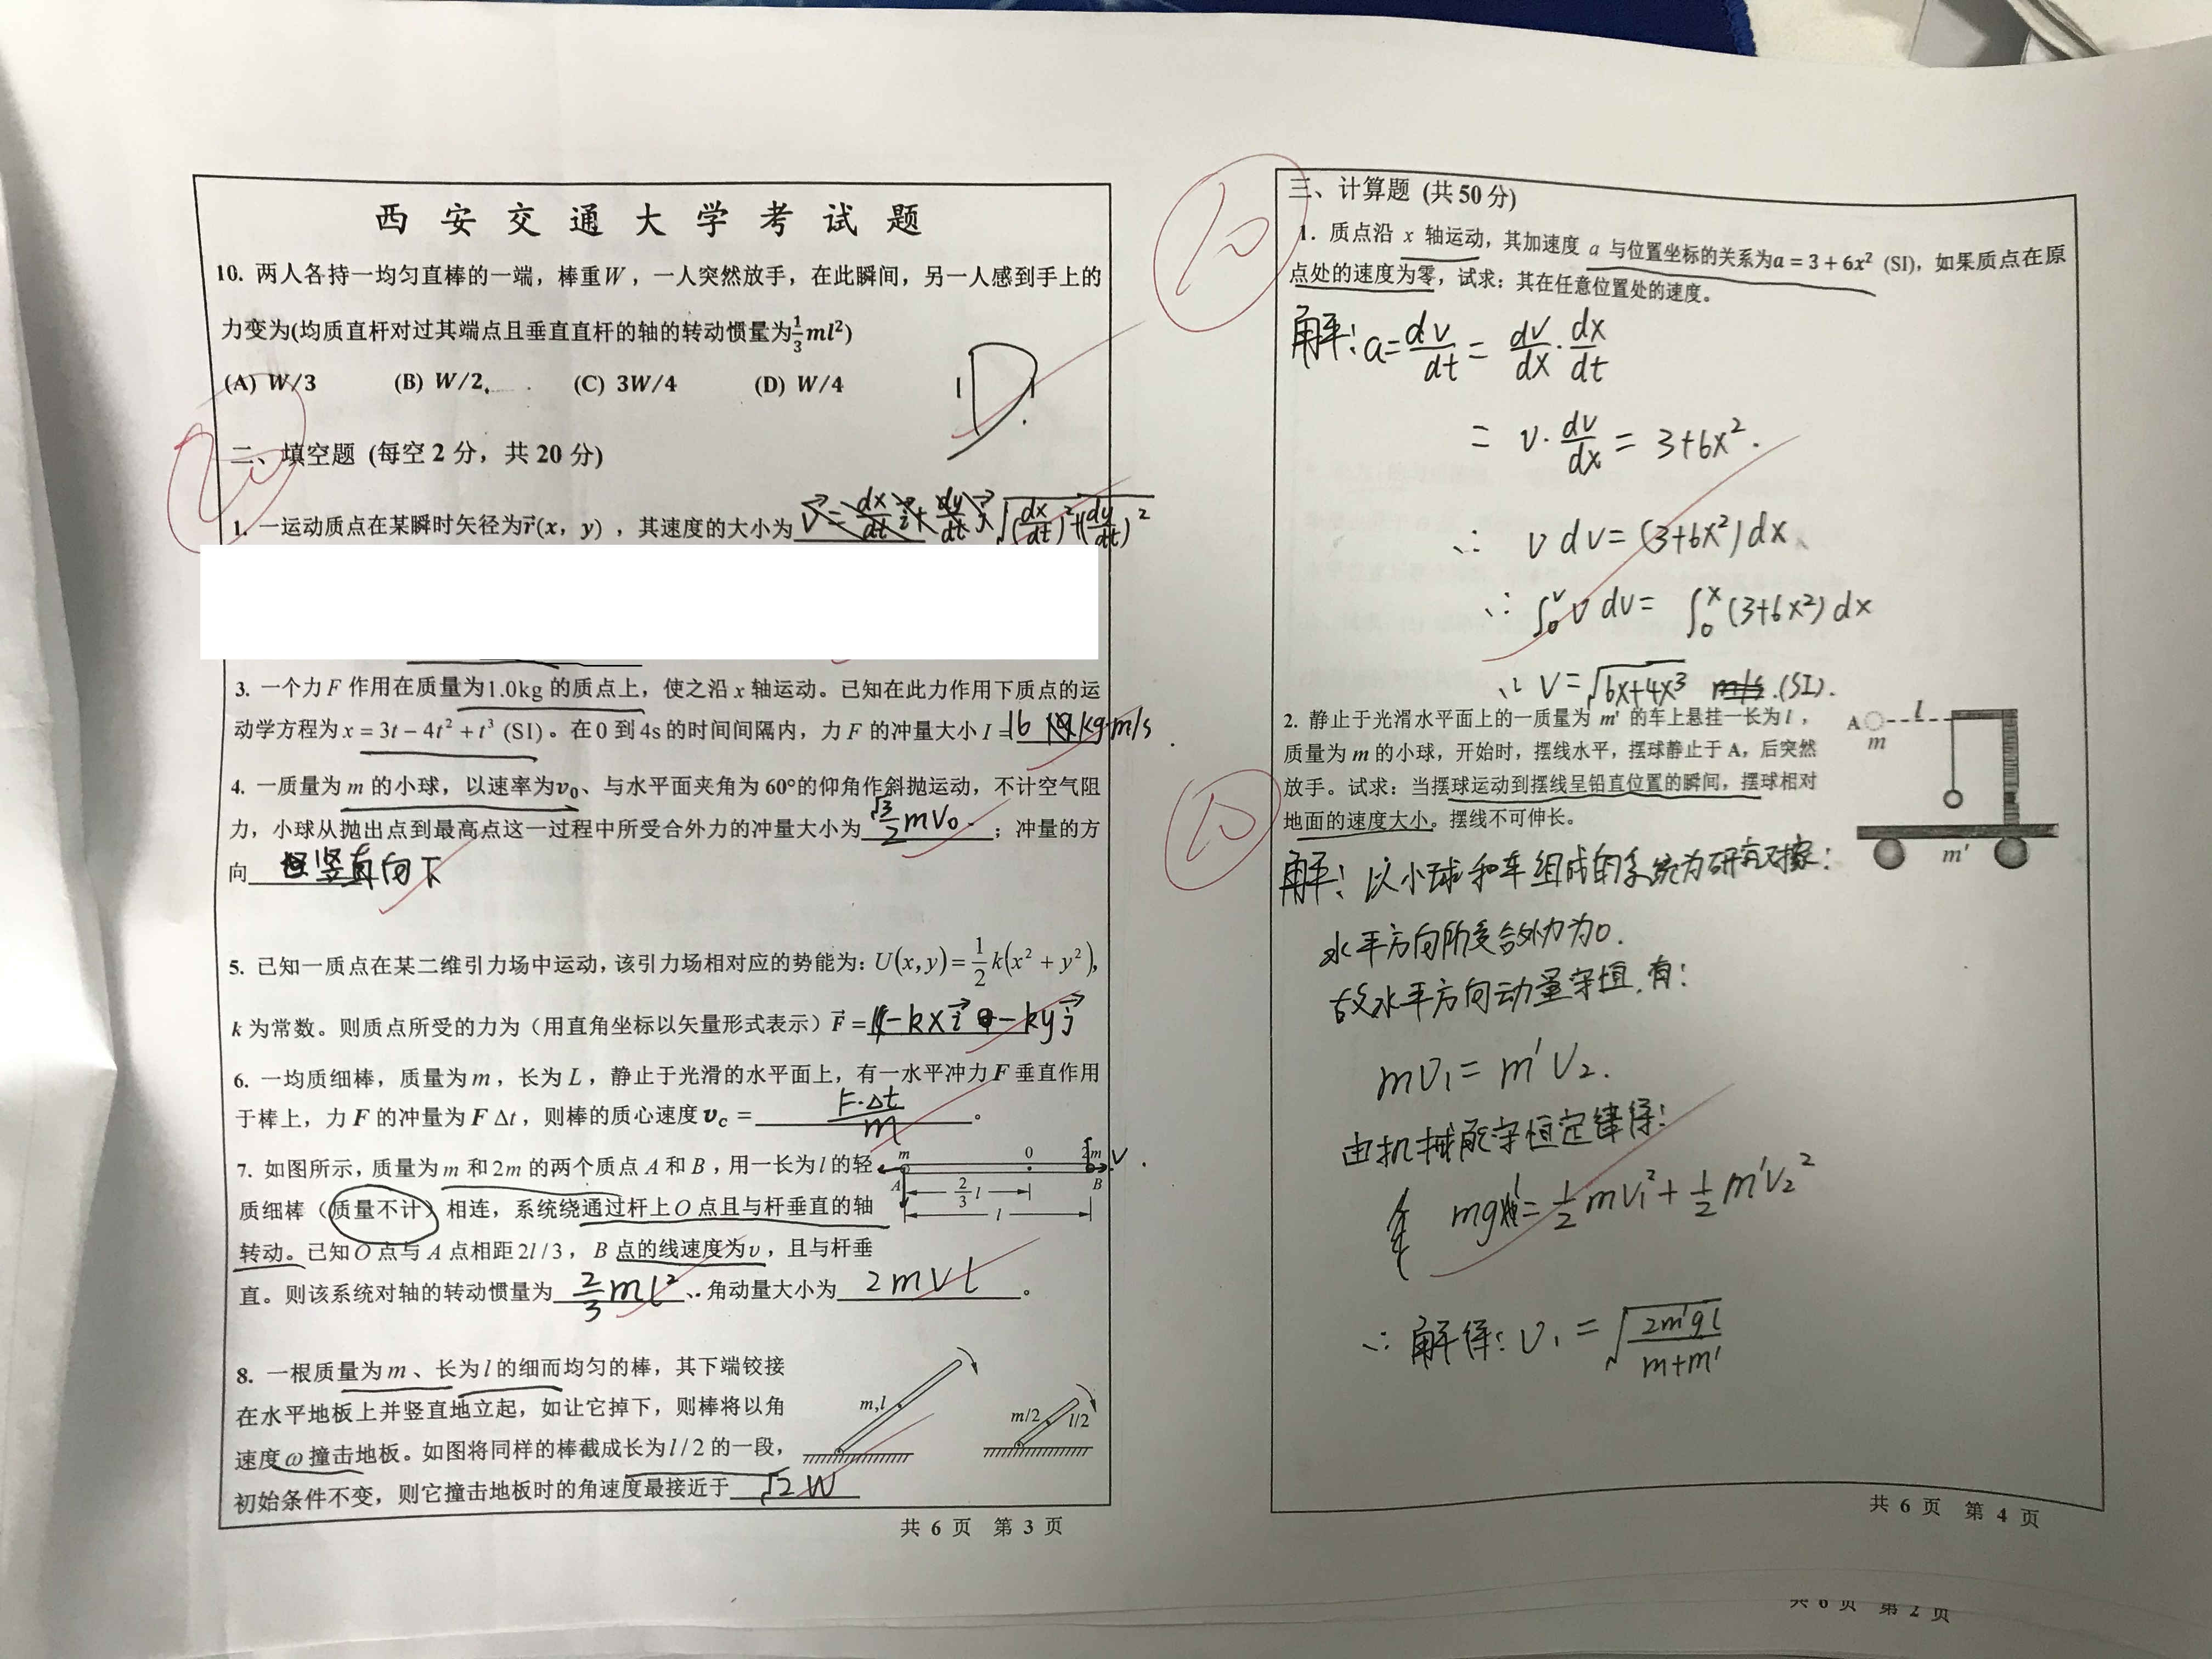 西安交通大学考试题
10. 两人各持一均匀直棒的一端，棒重W，一人突然放手，在此瞬间，另一人感到手上的
力变为(均质直杆对过其端点且垂直直杆的轴的转动惯量为\frac{1}{3}ml²)
(A) W/3 (B) W/2, (C) 3W/4 (D) W/4
二、填空题 (每空 2 分，共 20 分)
1. 一运动质点在某瞬时矢径为\vec{r}(x, y)，其速度的大小为 \sqrt{(\frac{dx}{dt})²+(\frac{dy}{dt})²}
3. 一个力F作用在质量为1.0kg的质点上，使之沿x轴运动。已知在此力作用下质点的运
动学方程为x = 3t − 4t² + t³ (SI)。在0到4s的时间间隔内，力F的冲量大小I = 16 kg·m/s
4. 一质量为m的小球，以速率为v₀、与水平面夹角为60°的仰角作斜抛运动，不计空气阻
力，小球从抛出点到最高点这一过程中所受合外力的冲量大小为 \frac{\sqrt{3}}{2}mv₀ ；冲量的方
向 竖直向下
5. 已知一质点在某二维引力场中运动，该引力场相对应的势能为：U(x,y) = \frac{1}{2}k(x² + y²),
k为常数。则质点所受的力为（用直角坐标以矢量形式表示）\vec{F} = -kx\vec{i} - ky\vec{j}
6. 一均质细棒，质量为m，长为L，静止于光滑的水平面上，有一水平冲力F垂直作用
于棒上，力F的冲量为FΔt，则棒的质心速度v_c = \frac{F·Δt}{m} 。
7. 如图所示，质量为m和2m的两个质点A和B，用一长为l的轻
质细棒（质量不计）相连，系统绕通过杆上O点且与杆垂直的轴
转动。已知O点与A点相距2l/3，B点的线速度为v，且与杆垂
直。则该系统对轴的转动惯量为 \frac{2}{3}ml² 、角动量大小为 2mvl 。
m 0 2m v
A \frac{2}{3}l B
l
8. 一根质量为m、长为l的细而均匀的棒，其下端铰接
在水平地板上并竖直地立起，如让它掉下，则棒将以角
速度ω撞击地板。如图将同样的棒截成长为l/2的一段，
初始条件不变，则它撞击地板时的角速度最接近于 \sqrt{2}W
m,l
m/2 l/2
共 6 页 第 3 页
三、计算题 (共 50 分)
1. 质点沿 x 轴运动，其加速度 a 与位置坐标的关系为a = 3 + 6x² (SI)，如果质点在原
点处的速度为零，试求：其在任意位置处的速度。
解：a = \frac{dv}{dt} = \frac{dv}{dx}·\frac{dx}{dt}
= v·\frac{dv}{dx} = 3+6x².
∴ vdv = (3+6x²)dx
∴ ∫₀ᵛ vdv = ∫₀ˣ (3+6x²)dx
∴ v = \sqrt{6x+4x³} (SI).
2. 静止于光滑水平面上的一质量为m'的车上悬挂一长为l，
质量为m的小球，开始时，摆线水平，摆球静止于A，后突然
放手。试求：当摆球运动到摆线呈铅直位置的瞬间，摆球相对
地面的速度大小。摆线不可伸长。
l A
m
m'
解：以小球和车组成的系统为研究对象：
水平方向所受合外力为0.
故水平方向动量守恒.有：
mv₁ = m'v₂.
由机械能守恒定律得：
mgl = \frac{1}{2}mv₁² + \frac{1}{2}m'v₂²
∴解得：v₁ = \sqrt{\frac{2m'gl}{m+m'}}
共 6 页 第 4 页